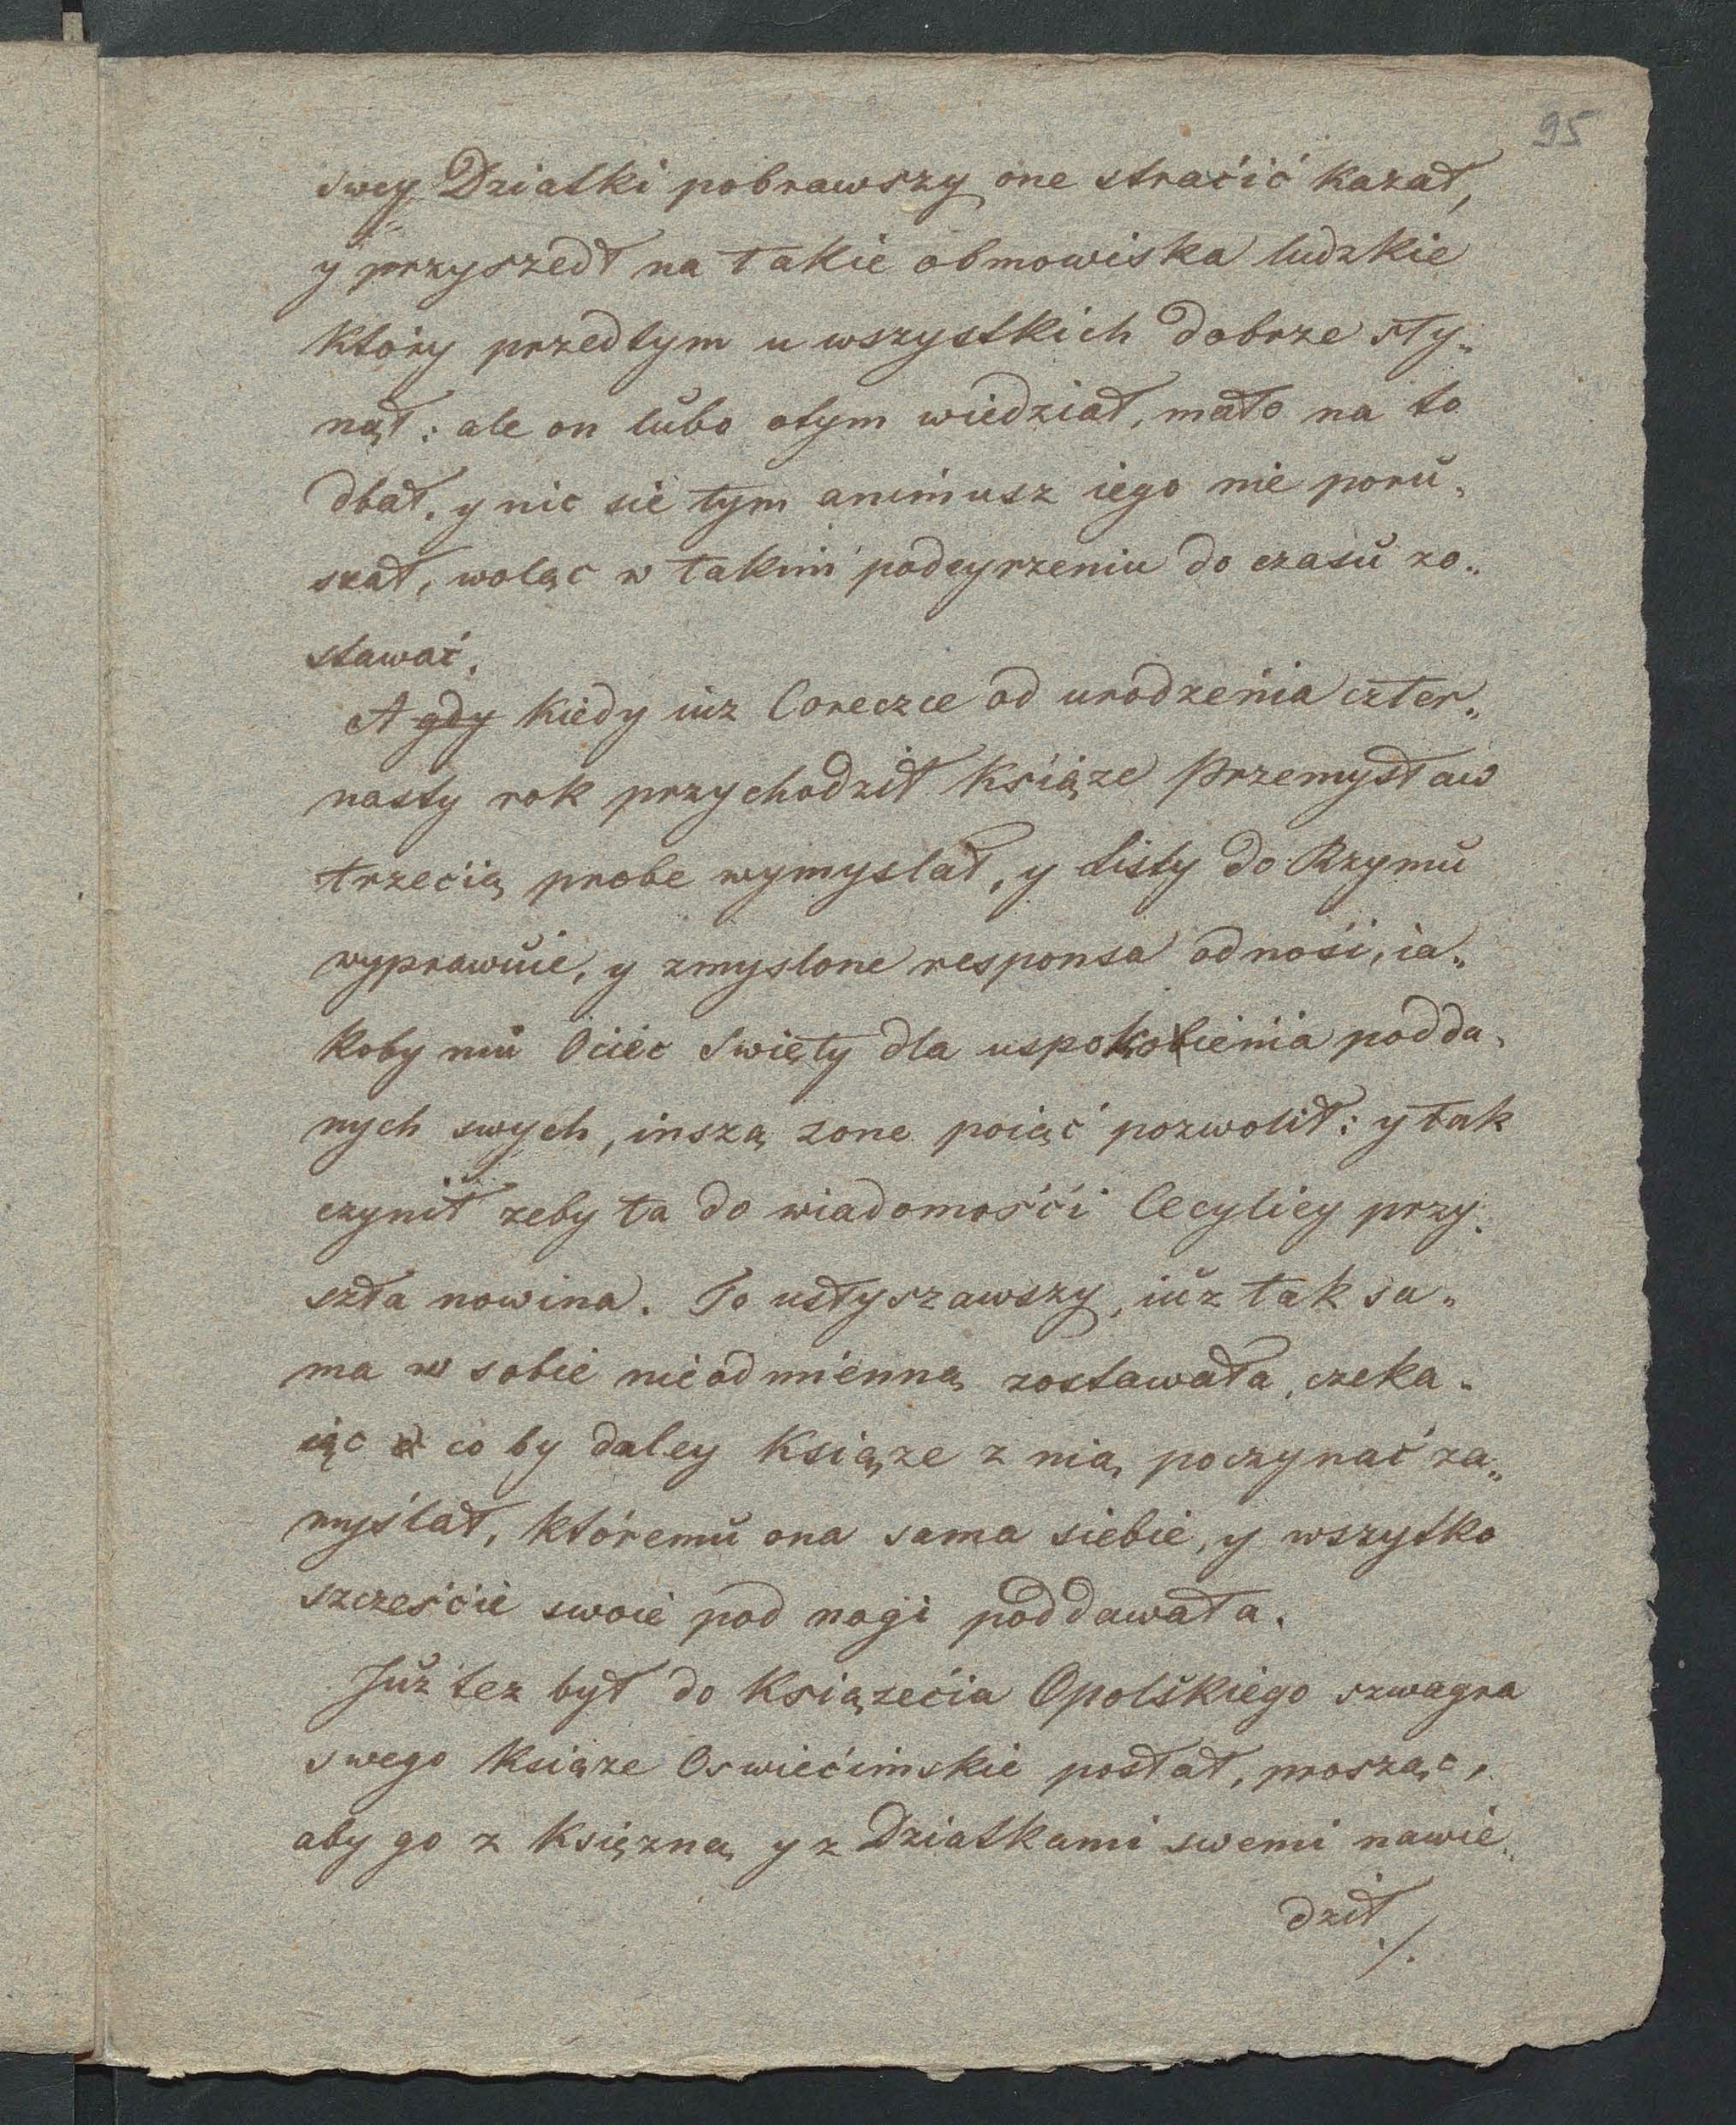 95
swey Dziatki pobrawszy one straćić kazał,
y przyszedł na takie obmowiska ludzkie
który przedtym u wszystkich dobrze sły„
nął: ale on lubo otym wiedział, mało na to
dbał. y nic sie tym animusz iego nie poru„
szał, woląc w takim podeyrzeniu do czasu zo„
stawać.
A gdy kiedy iuz Coreczce od urodzenia czter„
nasty rok przychodził Książe Przemysław
trzecią probe wymyslał, y Listy do Rzymu
wyprawuie, y zmyslone responsa odnośi, ia„
koby mu Ociec Swięty dla uspokoienia podda„
nych swych, inszą zone poiąć pozwolił: y tak
czynił zeby ta do wiadomośći Cecyliey przy„
szła nowina. To usłyszawszy, iuz tak sa„
ma w sobie nieodmienną zostawała, czeka„
iąc co by daley Książe z nią poczynać za„
myślał, któremu ona sama siebie, y wszytko
szczeście swoie pod nogi poddawała.
Juz tez był do Książećia Opolskiego szwagra
swego Książe Oswiećimskie posłał, prosząc,
aby go z Księzną y z Dziatkami swemi nawie„
dził ./.